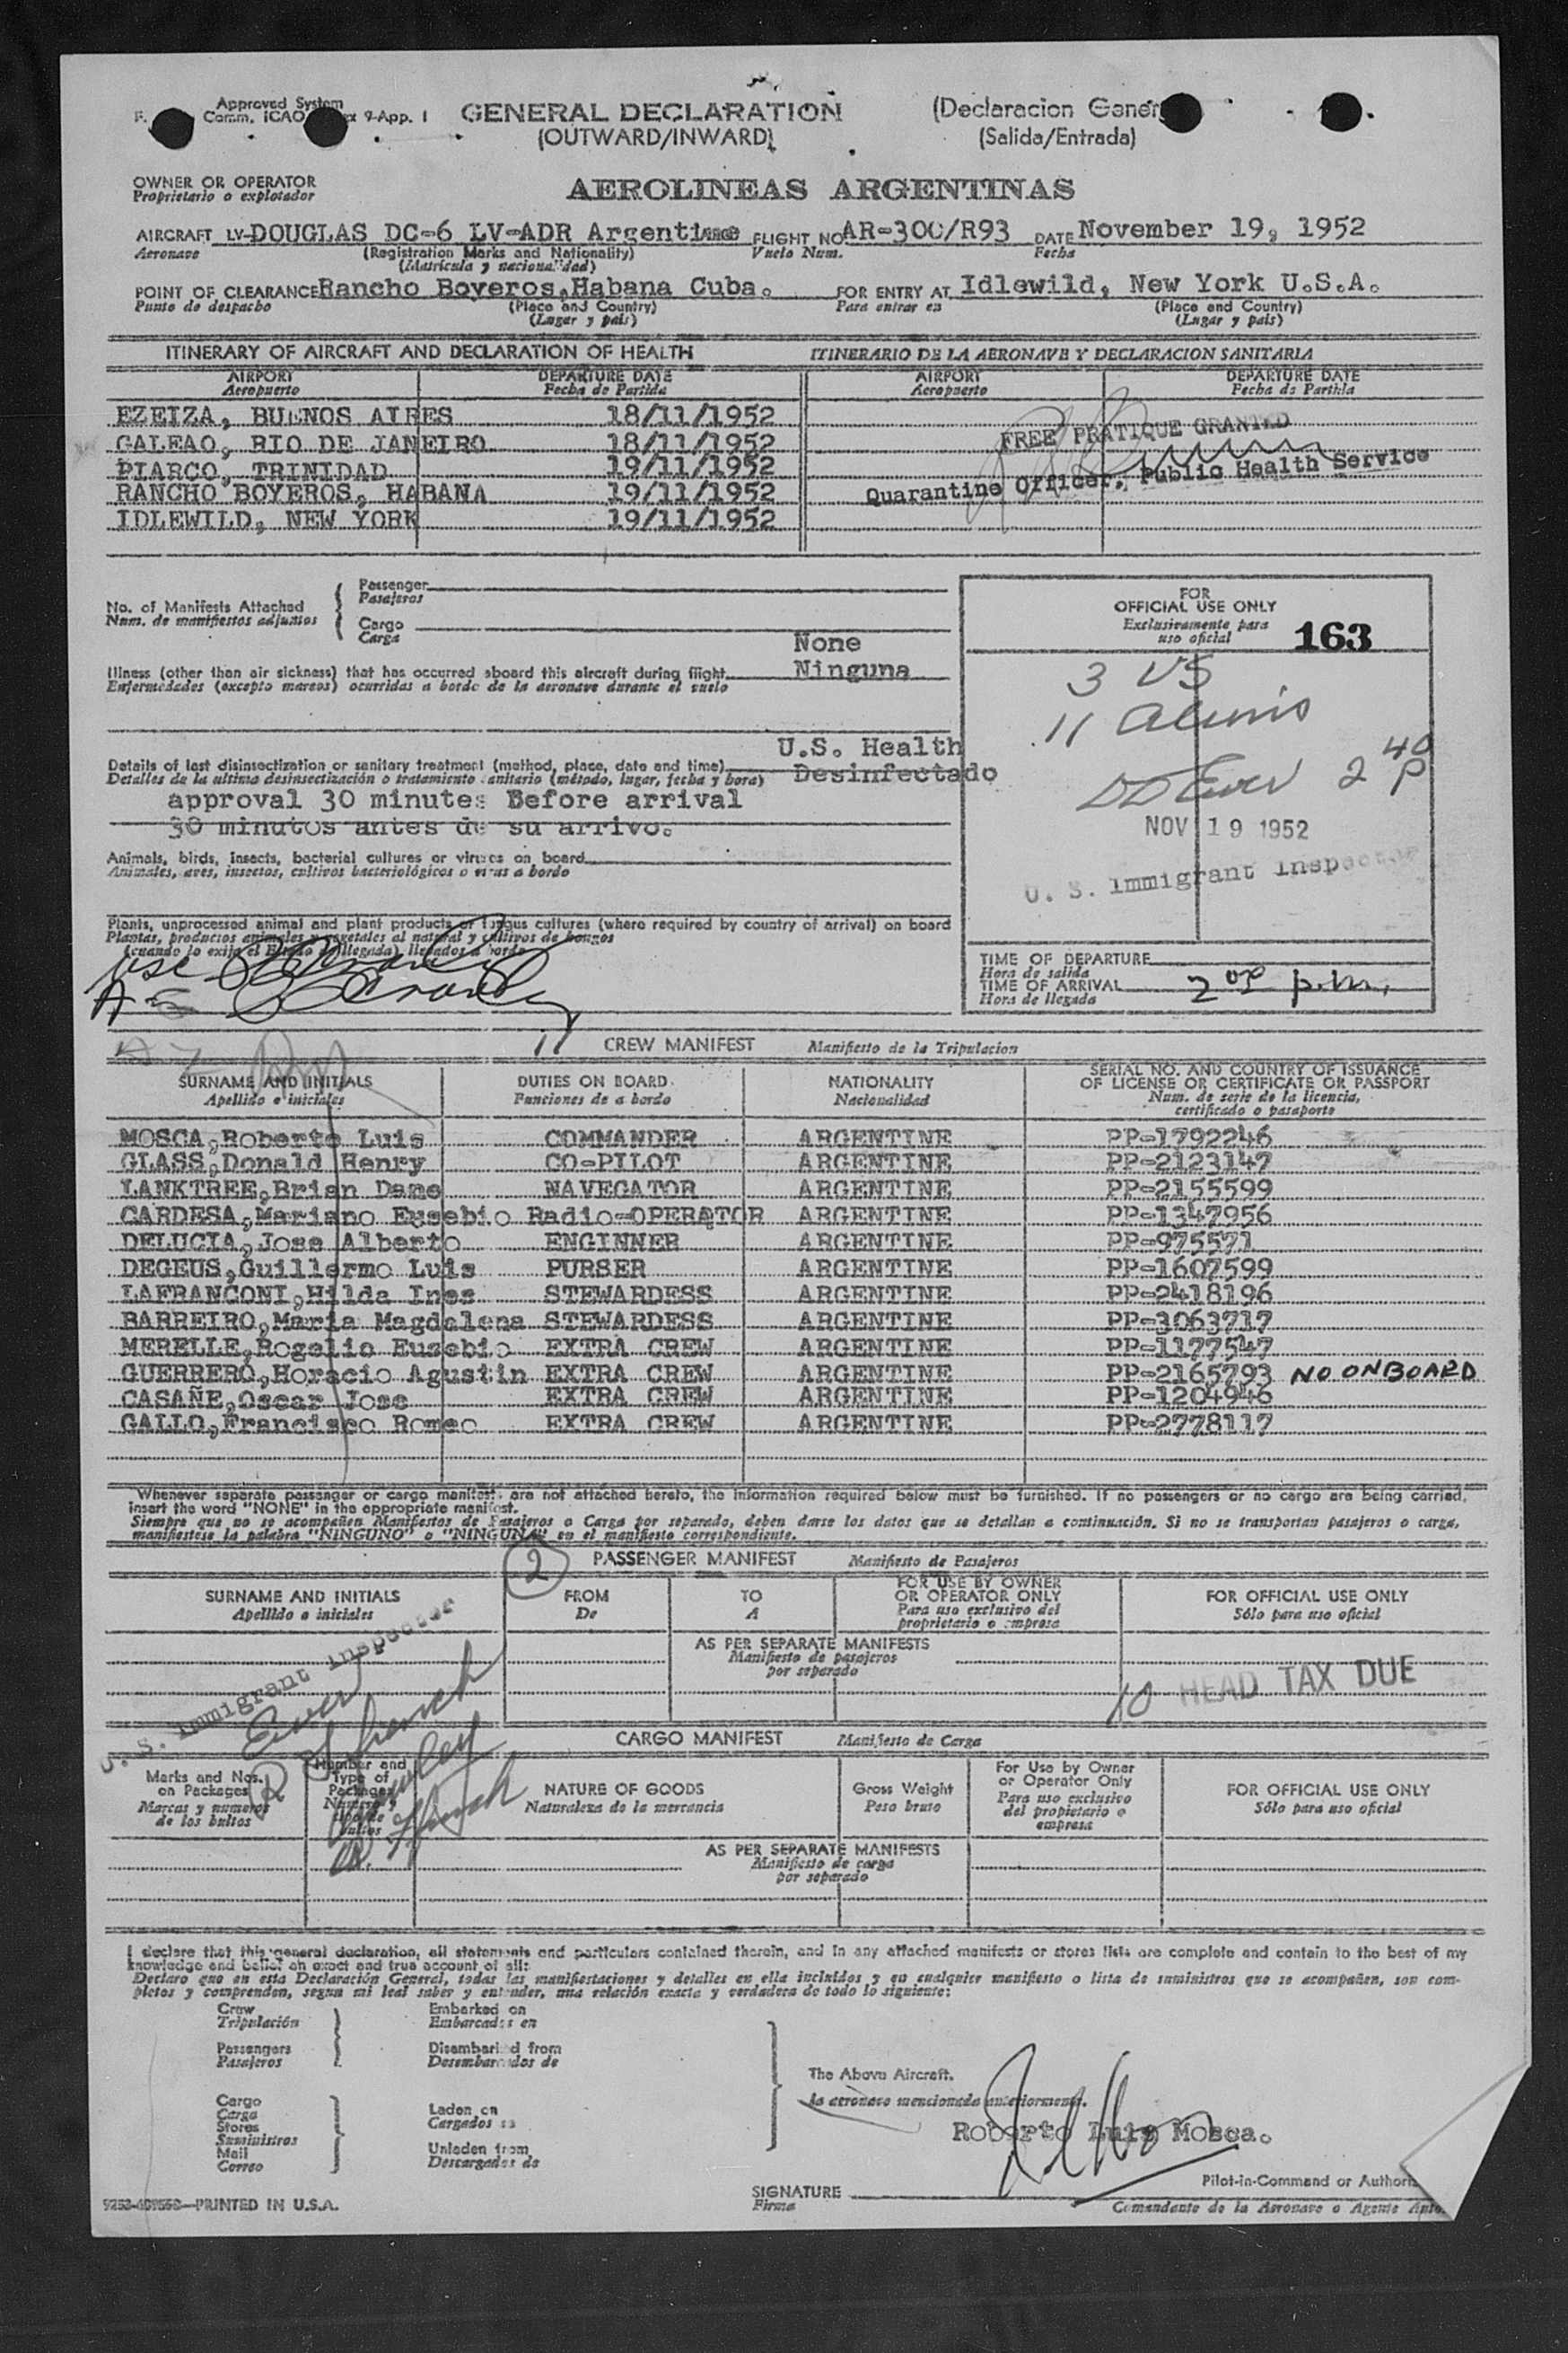 Approved System
Comm. ICAO 9-App. 1
GENERAL DECLARATION (Declaracion Gener
(OUTWARD/INWARD) (Salida/Entrada)
OWNER OR OPERATOR
Proprietario o explotador
AEROLINEAS ARGENTINAS
AIRCRAFT LV-DOUGLAS DC-6 LV-ADR Argentine FLIGHT NO AR-300/R93 DATE November 19, 1952
Aeronave (Registration Marks and Nationality) Vuelo Num. Fecha
(Matricula y nacionalidad)
POINT OF CLEARANCE Rancho Boyeros, Habana Cuba. FOR ENTRY AT Idlewild, New York U.S.A.
Punto de despacho (Place and Country) Para entrar en (Place and Country)
(Lugar y pais) (Lugar y pais)
ITINERARY OF AIRCRAFT AND DECLARATION OF HEALTH ITINERARIO DE LA AERONAVE Y DECLARACION SANITARIA
AIRPORT DEPARTURE DATE AIRPORT DEPARTURE DATE
Aeropuerto Fecha de Partida Aeropuerto Fecha de Partida
EZEIZA, BUENOS AIRES 18/11/1952
GALEAO, RIO DE JANEIRO 18/11/1952
PIARCO, TRINIDAD 19/11/1952
RANCHO BOYEROS, HABANA 19/11/1952
IDLEWILD, NEW YORK 19/11/1952
FREE PRATIQUE GRANTED
Quarantine Officer, Public Health Service
No. of Manifests Attached
Num. de manifiestos adjuntos
Passenger
Pasajeros
Cargo
Carga
None
Illness (other than air sickness) that has occurred aboard this aircraft during flight Ninguna
Enfermedades (excepto mareos) ocurridas a bordo de la aeronave durante el vuelo
U.S. Health
Details of last disinsectization or sanitary treatment (method, place, date and time) Desinfectado
Detalles de la ultima desinsectización o tratamiento sanitario (método, lugar, fecha y hora)
approval 30 minutes Before arrival
30 minutos antes de su arrivo.
Animals, birds, insects, bacterial cultures or viruses on board
Animales, aves, insectos, cultivos bacteriológicos o virus a bordo
Plants, unprocessed animal and plant products or fungus cultures (where required by country of arrival) on board
Plantas, productos animales y vegetales al natural y cultivos de hongos
(cuando lo exija el Estado de llegada) llegados a bordo
FOR
OFFICIAL USE ONLY
Exclusivamente para
uso oficial
163
3 US
11 aliens
2 40 P
NOV 19 1952
U. S. Immigrant Inspector
TIME OF DEPARTURE
Hora de salida
TIME OF ARRIVAL 2 09 p.m.
Hora de llegada
11 CREW MANIFEST Manifiesto de la Tripulacion
SURNAME AND INITIALS DUTIES ON BOARD NATIONALITY SERIAL NO. AND COUNTRY OF ISSUANCE
OF LICENSE OR CERTIFICATE OR PASSPORT
Apellido e iniciales Funciones de a bordo Nacionalidad Num. de serie de la licencia,
certificado o pasaporte
MOSCA, Roberto Luis COMMANDER ARGENTINE PP-1792246
GLASS, Donald Henry CO-PILOT ARGENTINE PP-2123147
LANKTREE, Brian Dame NAVEGATOR ARGENTINE PP-2155599
CARDESA, Mariano Eusebio Radio-OPERATOR ARGENTINE PP-1347956
DELUCIA, Jose Alberto ENGINNER ARGENTINE PP-975571
DEGEUS, Guillermo Luis PURSER ARGENTINE PP-1607599
LAFRANCONI, Hilda Ines STEWARDESS ARGENTINE PP-2418196
BARREIRO, Maria Magdalena STEWARDESS ARGENTINE PP-3063717
MERELLE, Rogelio Eusebio EXTRA CREW ARGENTINE PP-1177547
GUERRERO, Horacio Agustin EXTRA CREW ARGENTINE PP-2165793 NO ONBOARD
CASAÑE, Oscar Jose EXTRA CREW ARGENTINE PP-1204946
GALLO, Francisco Romeo EXTRA CREW ARGENTINE PP-2778117
Whenever separate passenger or cargo manifests are not attached hereto, the information required below must be furnished. If no passengers or no cargo are being carried,
insert the word "NONE" in the appropriate manifest.
Siempre que no se acompañen Manifiestos de Pasajeros o Carga por separado, deben darse los datos que se detallan a continuación. Si no se transportan pasajeros o carga,
manifiestese la palabra "NINGUNO" o "NINGUNA" en el manifiesto correspondiente.
2 PASSENGER MANIFEST Manifiesto de Pasajeros
SURNAME AND INITIALS FROM TO FOR USE BY OWNER
OR OPERATOR ONLY FOR OFFICIAL USE ONLY
Apellido e iniciales De A Para uso exclusivo del
proprietario o empresa Sólo para uso oficial
AS PER SEPARATE MANIFESTS
Manifiesto de pasajeros
por separado
U. S. Immigrant Inspector
10 HEAD TAX DUE
CARGO MANIFEST Manifiesto de Carga
Marks and Nos.
on Packages
Marcas y numeros
de los bultos
Number and
Type of
Packages
NATURE OF GOODS
Naturaleza de la mercancia
Gross Weight
Peso bruto
For Use by Owner
or Operator Only
Para uso exclusivo
del propietario o
empresa
FOR OFFICIAL USE ONLY
Sólo para uso oficial
AS PER SEPARATE MANIFESTS
Manifiesto de carga
por separado
I declare that this general declaration, all statements and particulars contained therein, and in any attached manifests or stores lists are complete and contain to the best of my
knowledge and belief an exact and true account of all:
Declaro que en esta Declaración General, todas las manifestaciones y detalles en ella incluidos y en cualquier manifiesto o lista de suministros que se acompañen, son com-
pletos y comprenden, segun mi leal saber y entender, una relación exacta y verdadera de todo lo siguiente:
Crew
Tripulación
Passengers
Pasajeros
Embarked on
Embarcados en
Disembarked from
Desembarcados de
Cargo
Carga
Stores
Suministros
Mail
Correo
Laden on
Cargados en
Unladen from
Descargados de
The Above Aircraft.
la aeronave mencionada anteriormente.
Roberto Luis Mosca.
Pilot-in-Command or Authori
SIGNATURE
Firma
Comandante de la Aeronave o Agente Auto
PRINTED IN U.S.A.